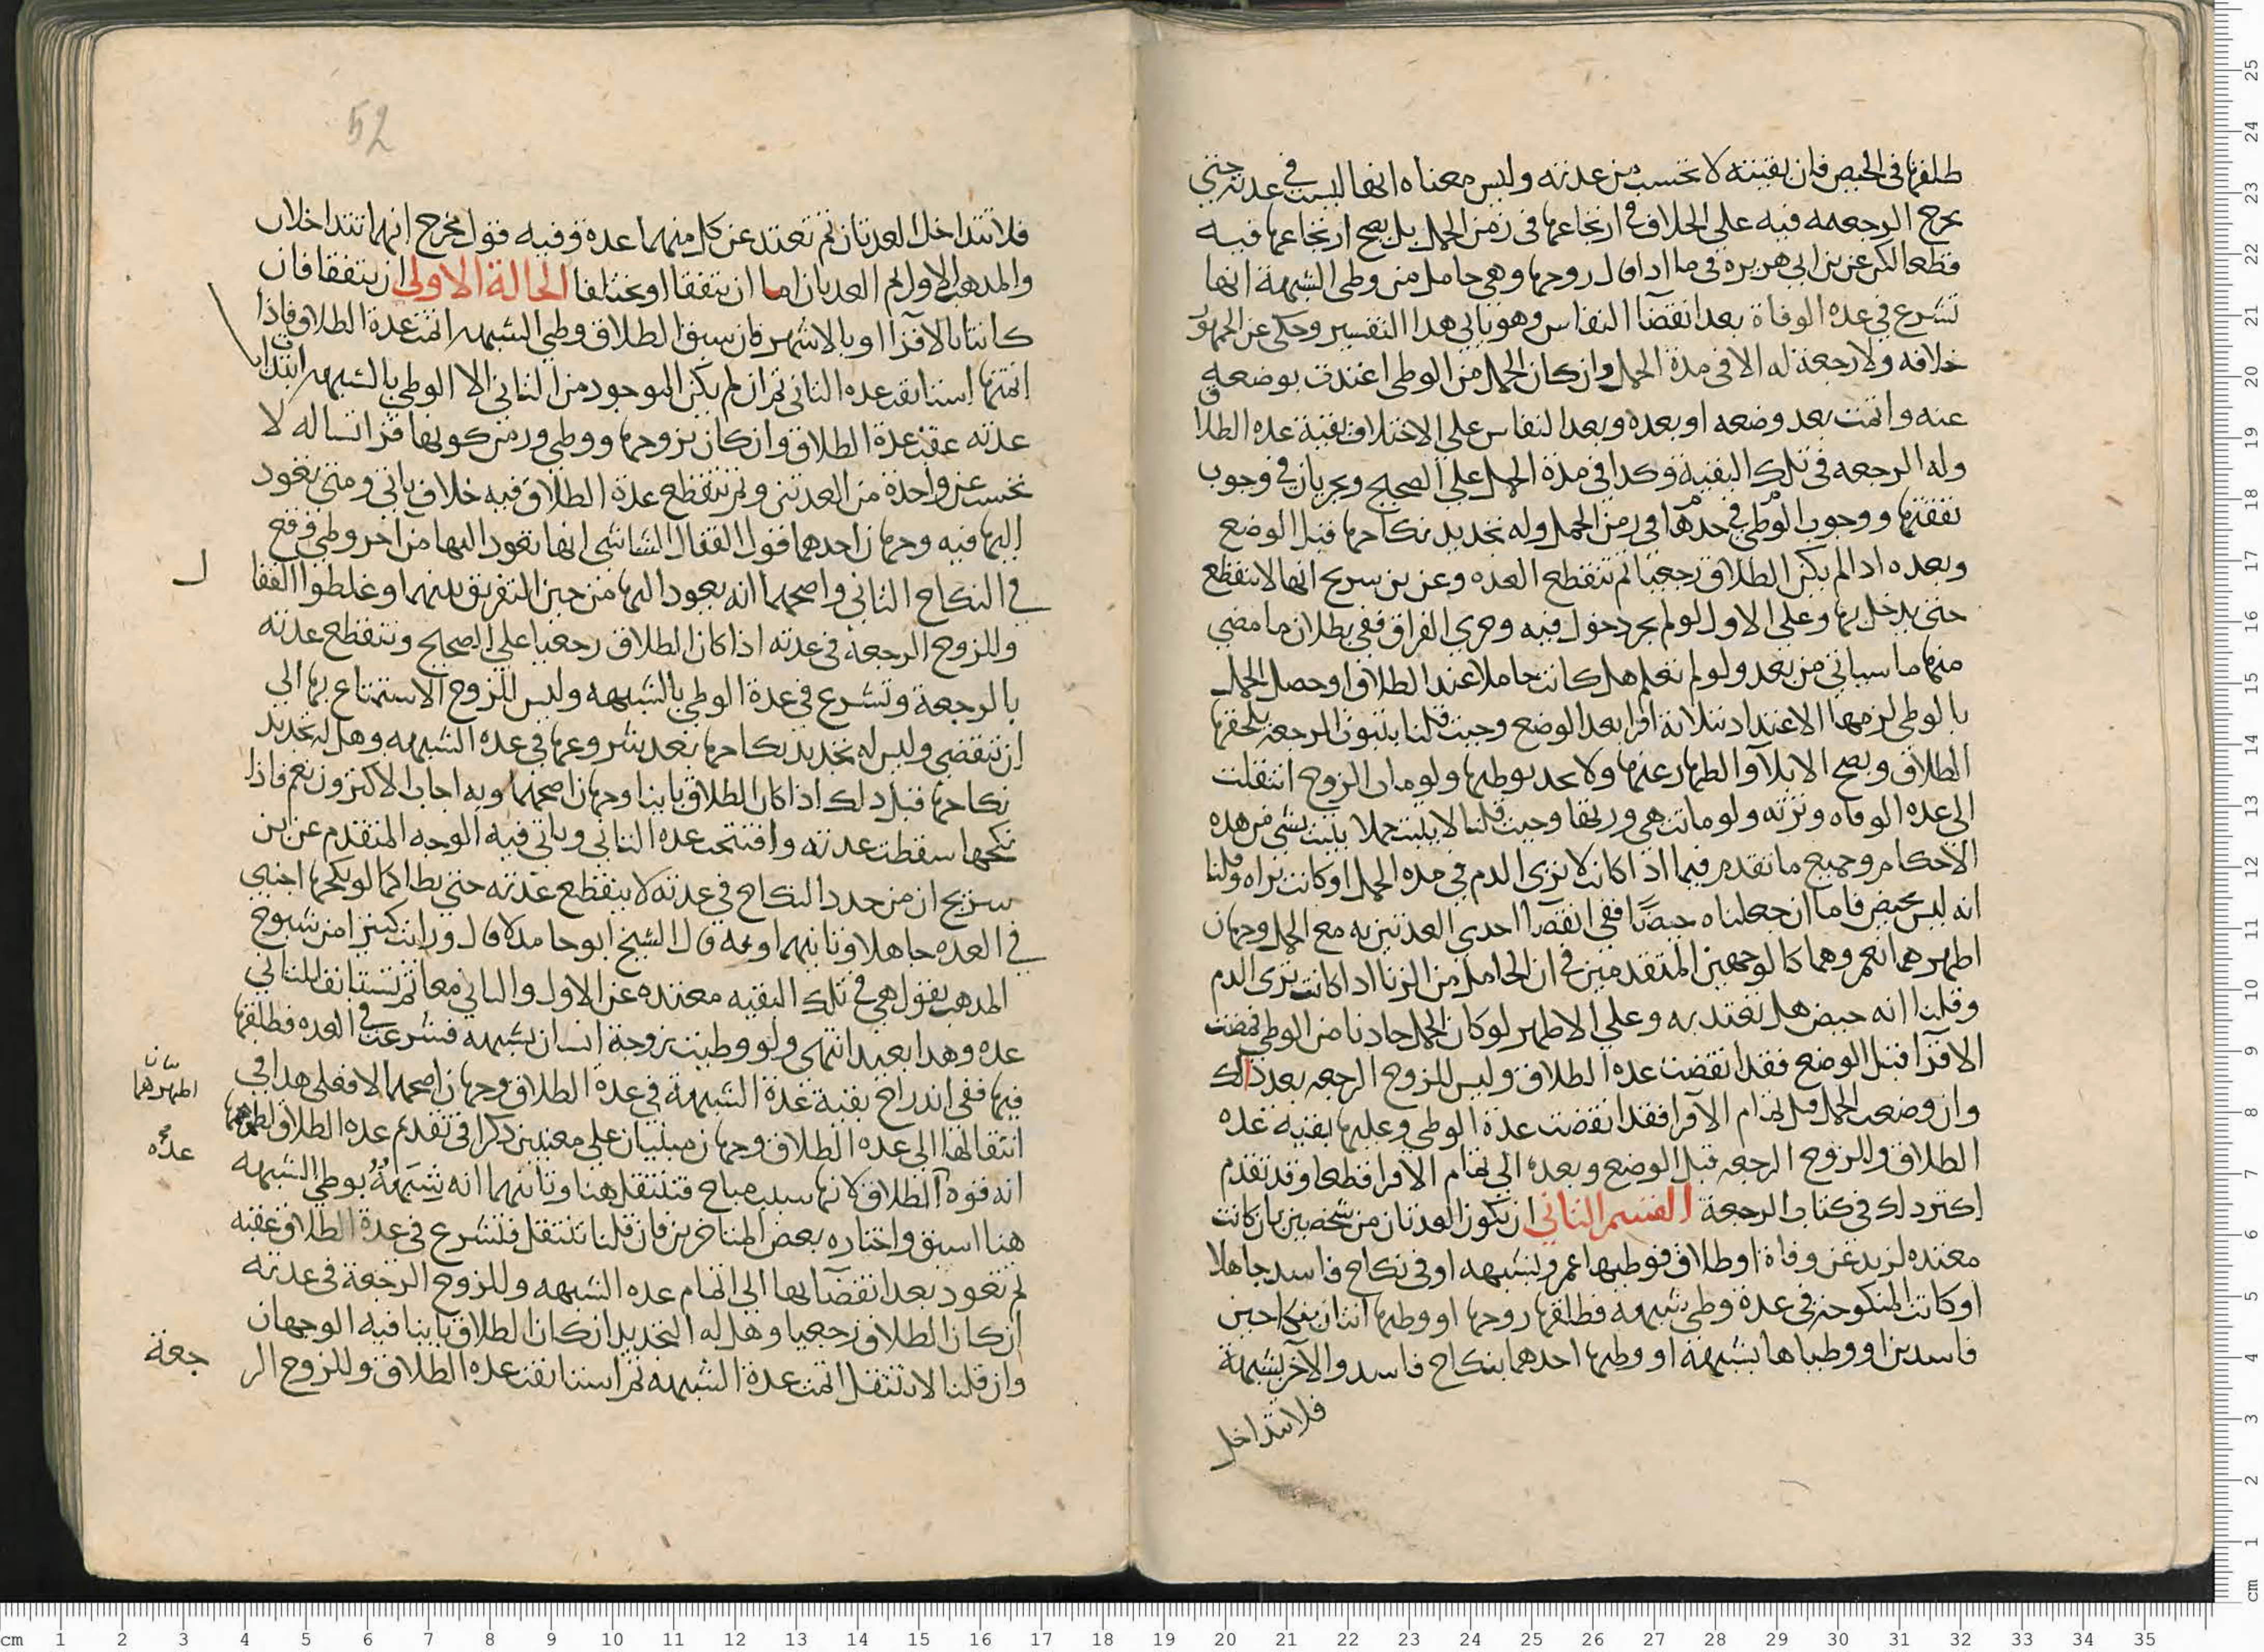 طلقها في الحيض فان بقيته لا تحسب من عدته وليس معناه انها ليست في عدته حتى
يخرج الرجعه فيه على الخلاف في ارتجاعها في زمن الحمل بل يصح ارتجاعها فيه
قطعا لكن عن بن ابي هريره في ما اذا قال زوجها وهي حامل من وطى الشبهة انها
تشرع في عده الوفاة بعد انقضآ النفاس وهو ياتي هذا التفسير وحكى عن الجمهور
خلافه ولا رجعة له الا في مدة الحمل وان كان الحمل من الوطى اعتدت بوضعه
عنه واتمت بعد وضعه او بعده وبعد النفاس على الاختلاف بقية عده الطلاق
وله الرجعه في تلك البقية وكذا في مدة الحمل على الصحيح ويجريان في وجوب
نفقتها ووجوب الوطى في حدها في زمن الحمل وله تجديد نكاحها قبل الوضع
وبعده اذا لم يكن الطلاق رجعيا ثم تنقطع العده وعن بن سريح انها لا تنقطع
حتى يدخل بها وعلى الاول لو لم يجر دخول فيه وجرى الفراق ففي بطلان ما مضى
منها ما سياتي من بعد ولو لم نعلم هل كانت حاملا عند الطلاق او حصل الحمل
بالوطى لزمها الاعتداد بثلاثة اقرا بعد الوضع وحيث قلنا بثبوت الرجعه يلحقها
الطلاق ويصح الايلآ والظهار عنها ولا يحد بوطيها ولو مات الزوج انتقلت
الى عده الوفاه وترثه ولو ماتت هي ورثها وحيث قلنا لا يثبت حملا يثبت شي من هذه
الاحكام وجميع ما تقدم فيما اذا كانت لا ترى الدم في مده الحمل او كانت تراه وقلنا
انه ليس بحيض فاما ان جعلناه حيضا ففي انقضآ احدى العدتين به مع الحمل وجهان
اظهرهما نعم وهما كالوجهين المتقدمين في ان الحامل من الزنا اذا كانت ترى الدم
وقلنا انه حيض هل تعتد به وعلى الاظهر لو كان الحمل حادثا من الوطى فمضت
الاقرآ قبل الوضع فقد انقضت عده الطلاق وليس للزوج الرجعه بعد ذلك
وان وضعت الحمل قبل تمام الاقرا فقد انقضت عدة الوطى وعليها بقية عده
الطلاق وللزوج الرجعه قبل الوضع وبعده الى تمام الاقرا قطعا وقد تقدم
اكثر ذلك في كتاب الرجعة القسم الثاني ان تكون العدتان من شخصين بان كانت
معتده لزيد عن وفاة او طلاق فوطيها عمرو بشبهه او في نكاح فاسد جاهلا
او كانت المنكوحه في عدة وطى شبهة فطلقها زوجها او وطيها اثنان بنكاحين
فاسدين او وطياها بشبهة او وطيها احدهما بنكاح فاسد والآخر بشبهة
فلا تتداخل
52
فلا تتداخل العدتان ثم تعتد عن كل منهما عدة وفيه قول مخرج انهما تتداخلان
والمذهب الاول ثم العدتان اما ان يتفقا او يختلفا الحالة الاولى ان يتفقا فان
كانتا بالاقرآ او بالاشهر فان سبق الطلاق وطى الشبهه اتمت عدة الطلاق فاذا
اتمتها استانفت عده الثاني ثم ان لم يكن الموجود من الثاني الا الوطى بالشبهه ابتدا
عدته عقب عدة الطلاق وان كان تزوجها ووطى وزمن كونها فراشا له لا
تحسب عن واحدة من العدتين وثم تنقطع عدة الطلاق فيه خلاف ياتي ومتى تعود
اليها فيه وجهان احدهما قول القفال الشاشي انها تعود اليها من اخر وطى وقع
في النكاح الثاني واصحهما انه يعود اليها من حين التفريق بينهما وغلطوا القفا
ل
وللزوج الرجعة في عدته اذا كان الطلاق رجعيا على الصحيح وتنقطع عدته
بالرجعة وتشرع في عدة الوطى بالشبهه وليس للزوج الاستمتاع بها الى
ان تنقضي وليس له تجديد نكاحها بعد شروعها في عده الشبهه وهل له تجديد
نكاحها قبل ذلك اذا كان الطلاق باينا وجهان اصحهما وبه اجاب الاكثرون نعم فاذا
نكحها سقطت عدته وافتتحت عده الثاني وياتي فيه الوجه المتقدم عن بن
سريح ان من جدد النكاح في عدته لا ينقطع عدته حتى يطا كما لو نكحها اجنبي
في العده جاهلا وثانيهما قال الشيخ ابو حامد لا قال ورايت كثيرا من شيوخ
المذهب يقول هي في تلك البقيه معتده عن الاول والثاني معا ثم تستانف للثاني
عده وهذا بعيد انتهى ولو وطيت زوجة انسان بشبهه فشرعت في العده فطلقها
فيها ففي اندراج بقية عدة الشبهة في عدة الطلاق وجهان اصحهما لا فعلى هذا في
انتقالها الى عده الطلاق وجهان مبنيان على معنيين ذكرا في تقديم عده الطلاق
بيانان اظهرهما
انه قوة الطلاق لانها سبب مباح فتنتقل هنا وثانيهما انه شبهة بوطى الشبهه
عده صح
هنا اسبق واختاره بعض المتاخرين فان قلنا تنتقل فتشرع في عدة الطلاق عقبه
ثم تعود بعد انقضآيها الى اتمام عده الشبهه وللزوج الرجعة في عدته
ان كان الطلاق رجعيا وهل له التجديد ان كان الطلاق باينا فيه الوجهان
وان قلنا لا تنتقل اتمت عدة الشبهه ثم استانفت عده الطلاق وللزوج الر
جعة